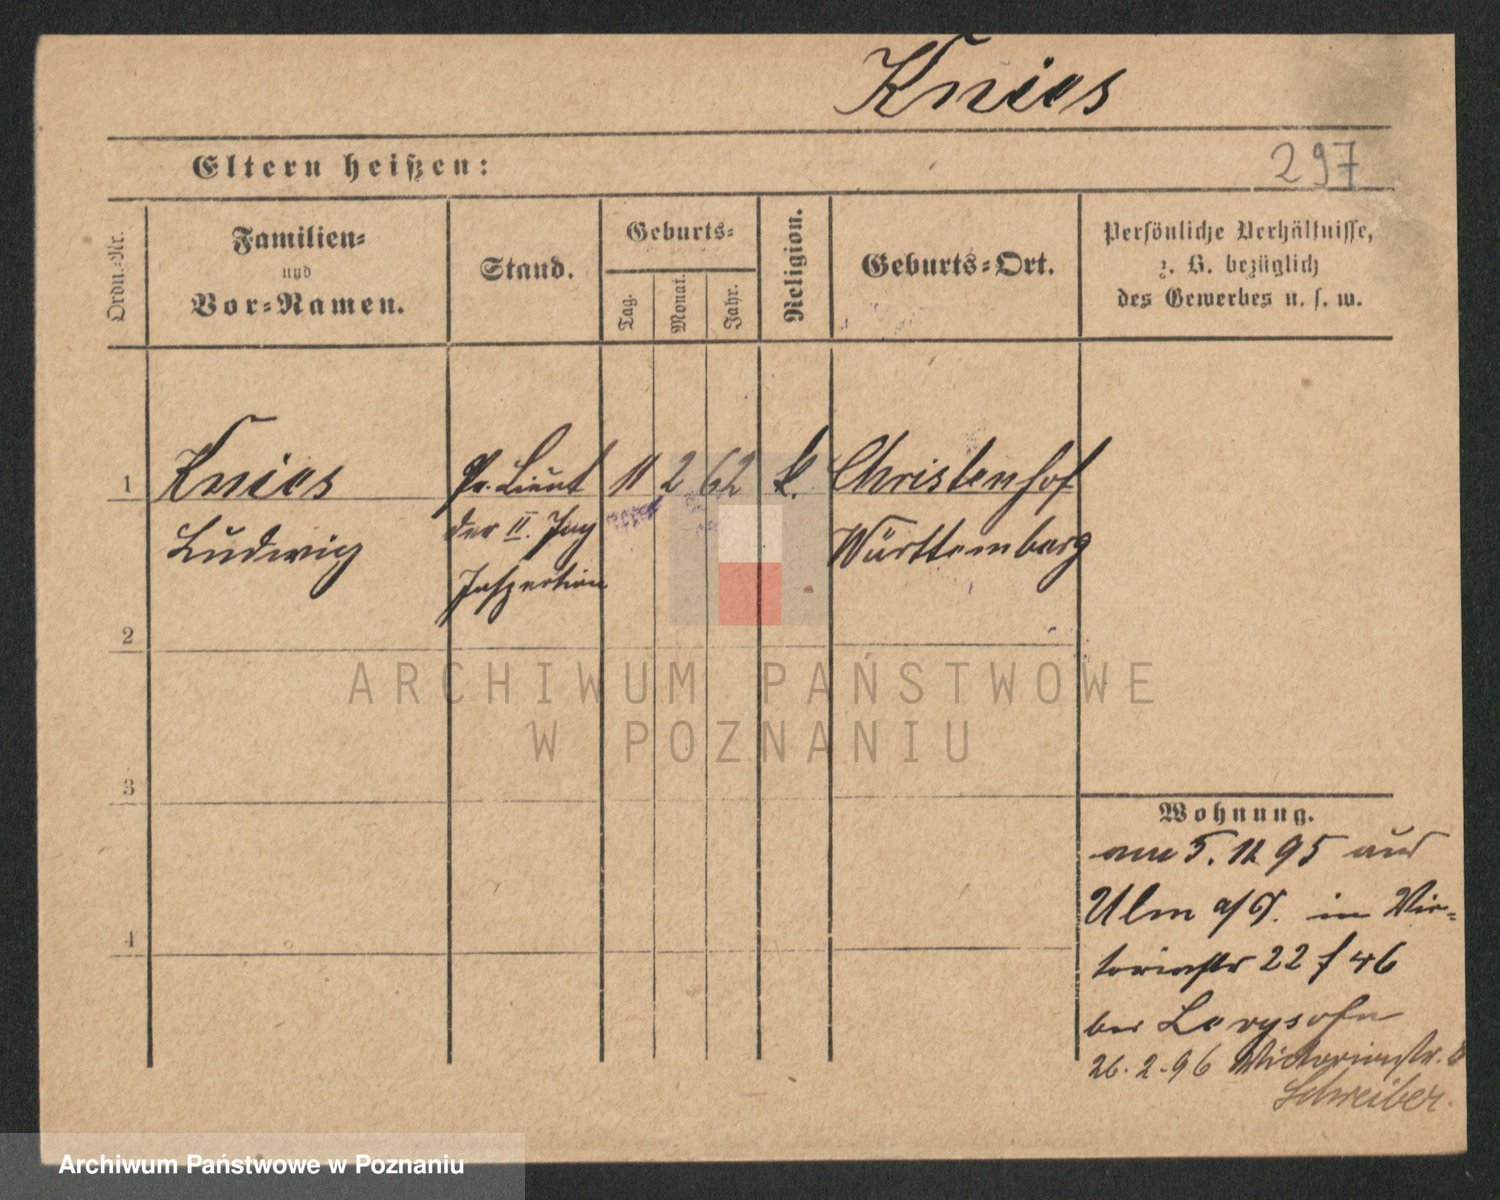 Knies
Eltern heißen:
297
Ordn.-Nr.
Familien-
und
Vor-Namen.
Stand.
Geburts-
Tag.
Monat.
Jahr.
Religion.
Geburts-Ort.
Persönliche Verhältnisse,
z. B. bezüglich
des Gewerbes u. s. w.
1
Knies
Pr. Lieut
11 2 62
Christenhof
Ludwig
der II. Ing
Württemberg
Inspection
2
ARCHIWUM PAŃSTWOWE
W POZNANIU
3
Wohnung.
am 5. 11 95 aus
4
Ulm a/D. in Vic-
toriastr 22 / 46
bei Levysohn
26. 2. 96 Victoriastr. 8
Schreiber.
Archiwum Państwowe w Poznaniu